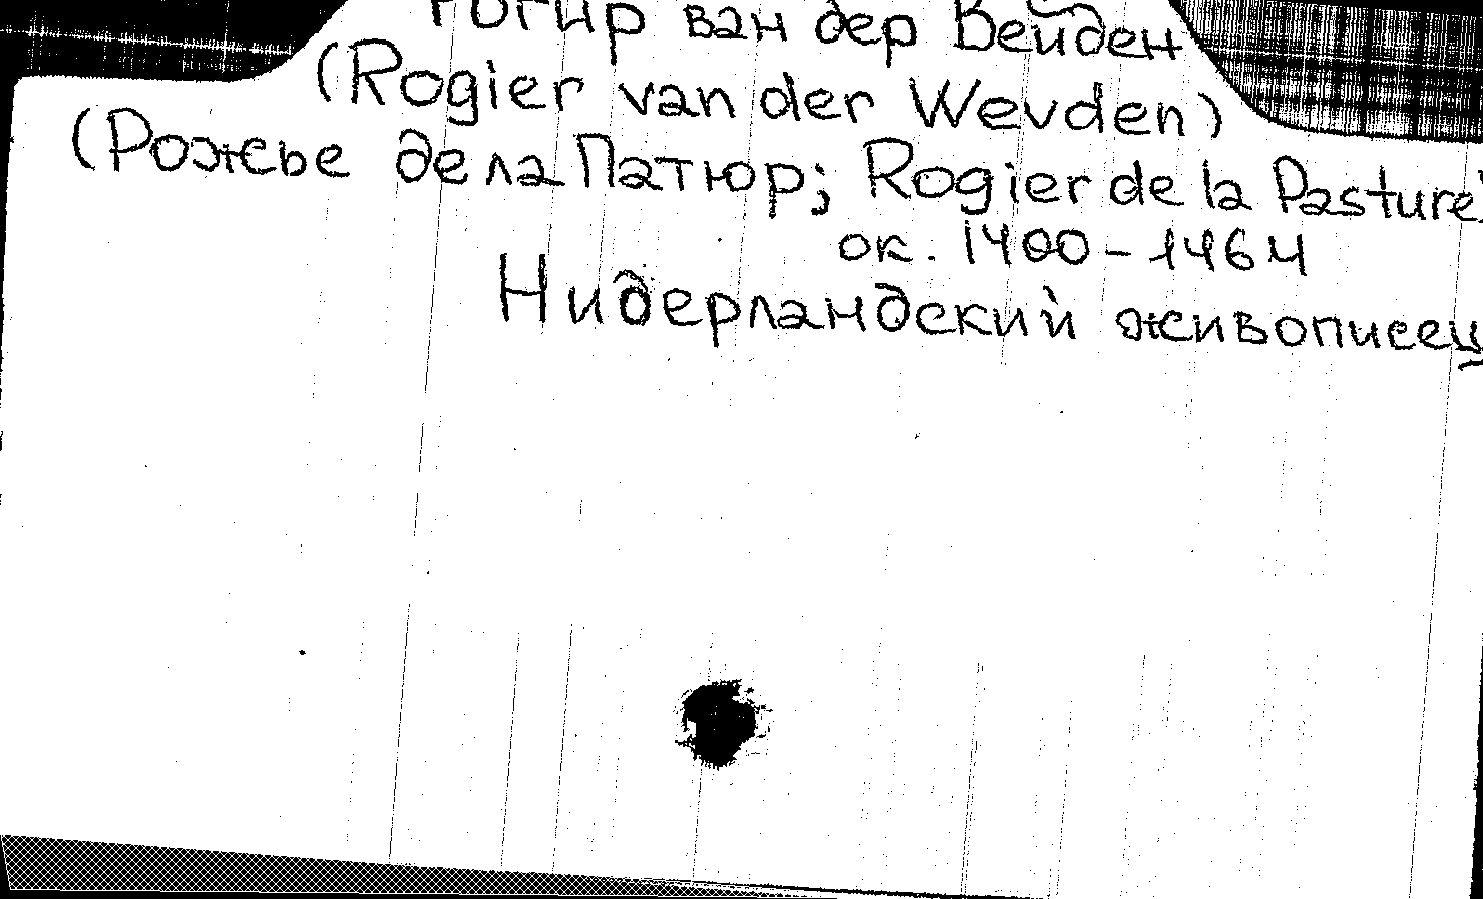 Рогир ван дер Вейден
(Rogier van der Wevden)
(Рожье де ла Патюр; Rogier de la Pasture)
ок. 1400-1464
Нидерландский живописец